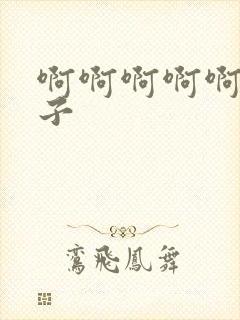 啊啊啊啊啊
子
鸾飛鳳舞